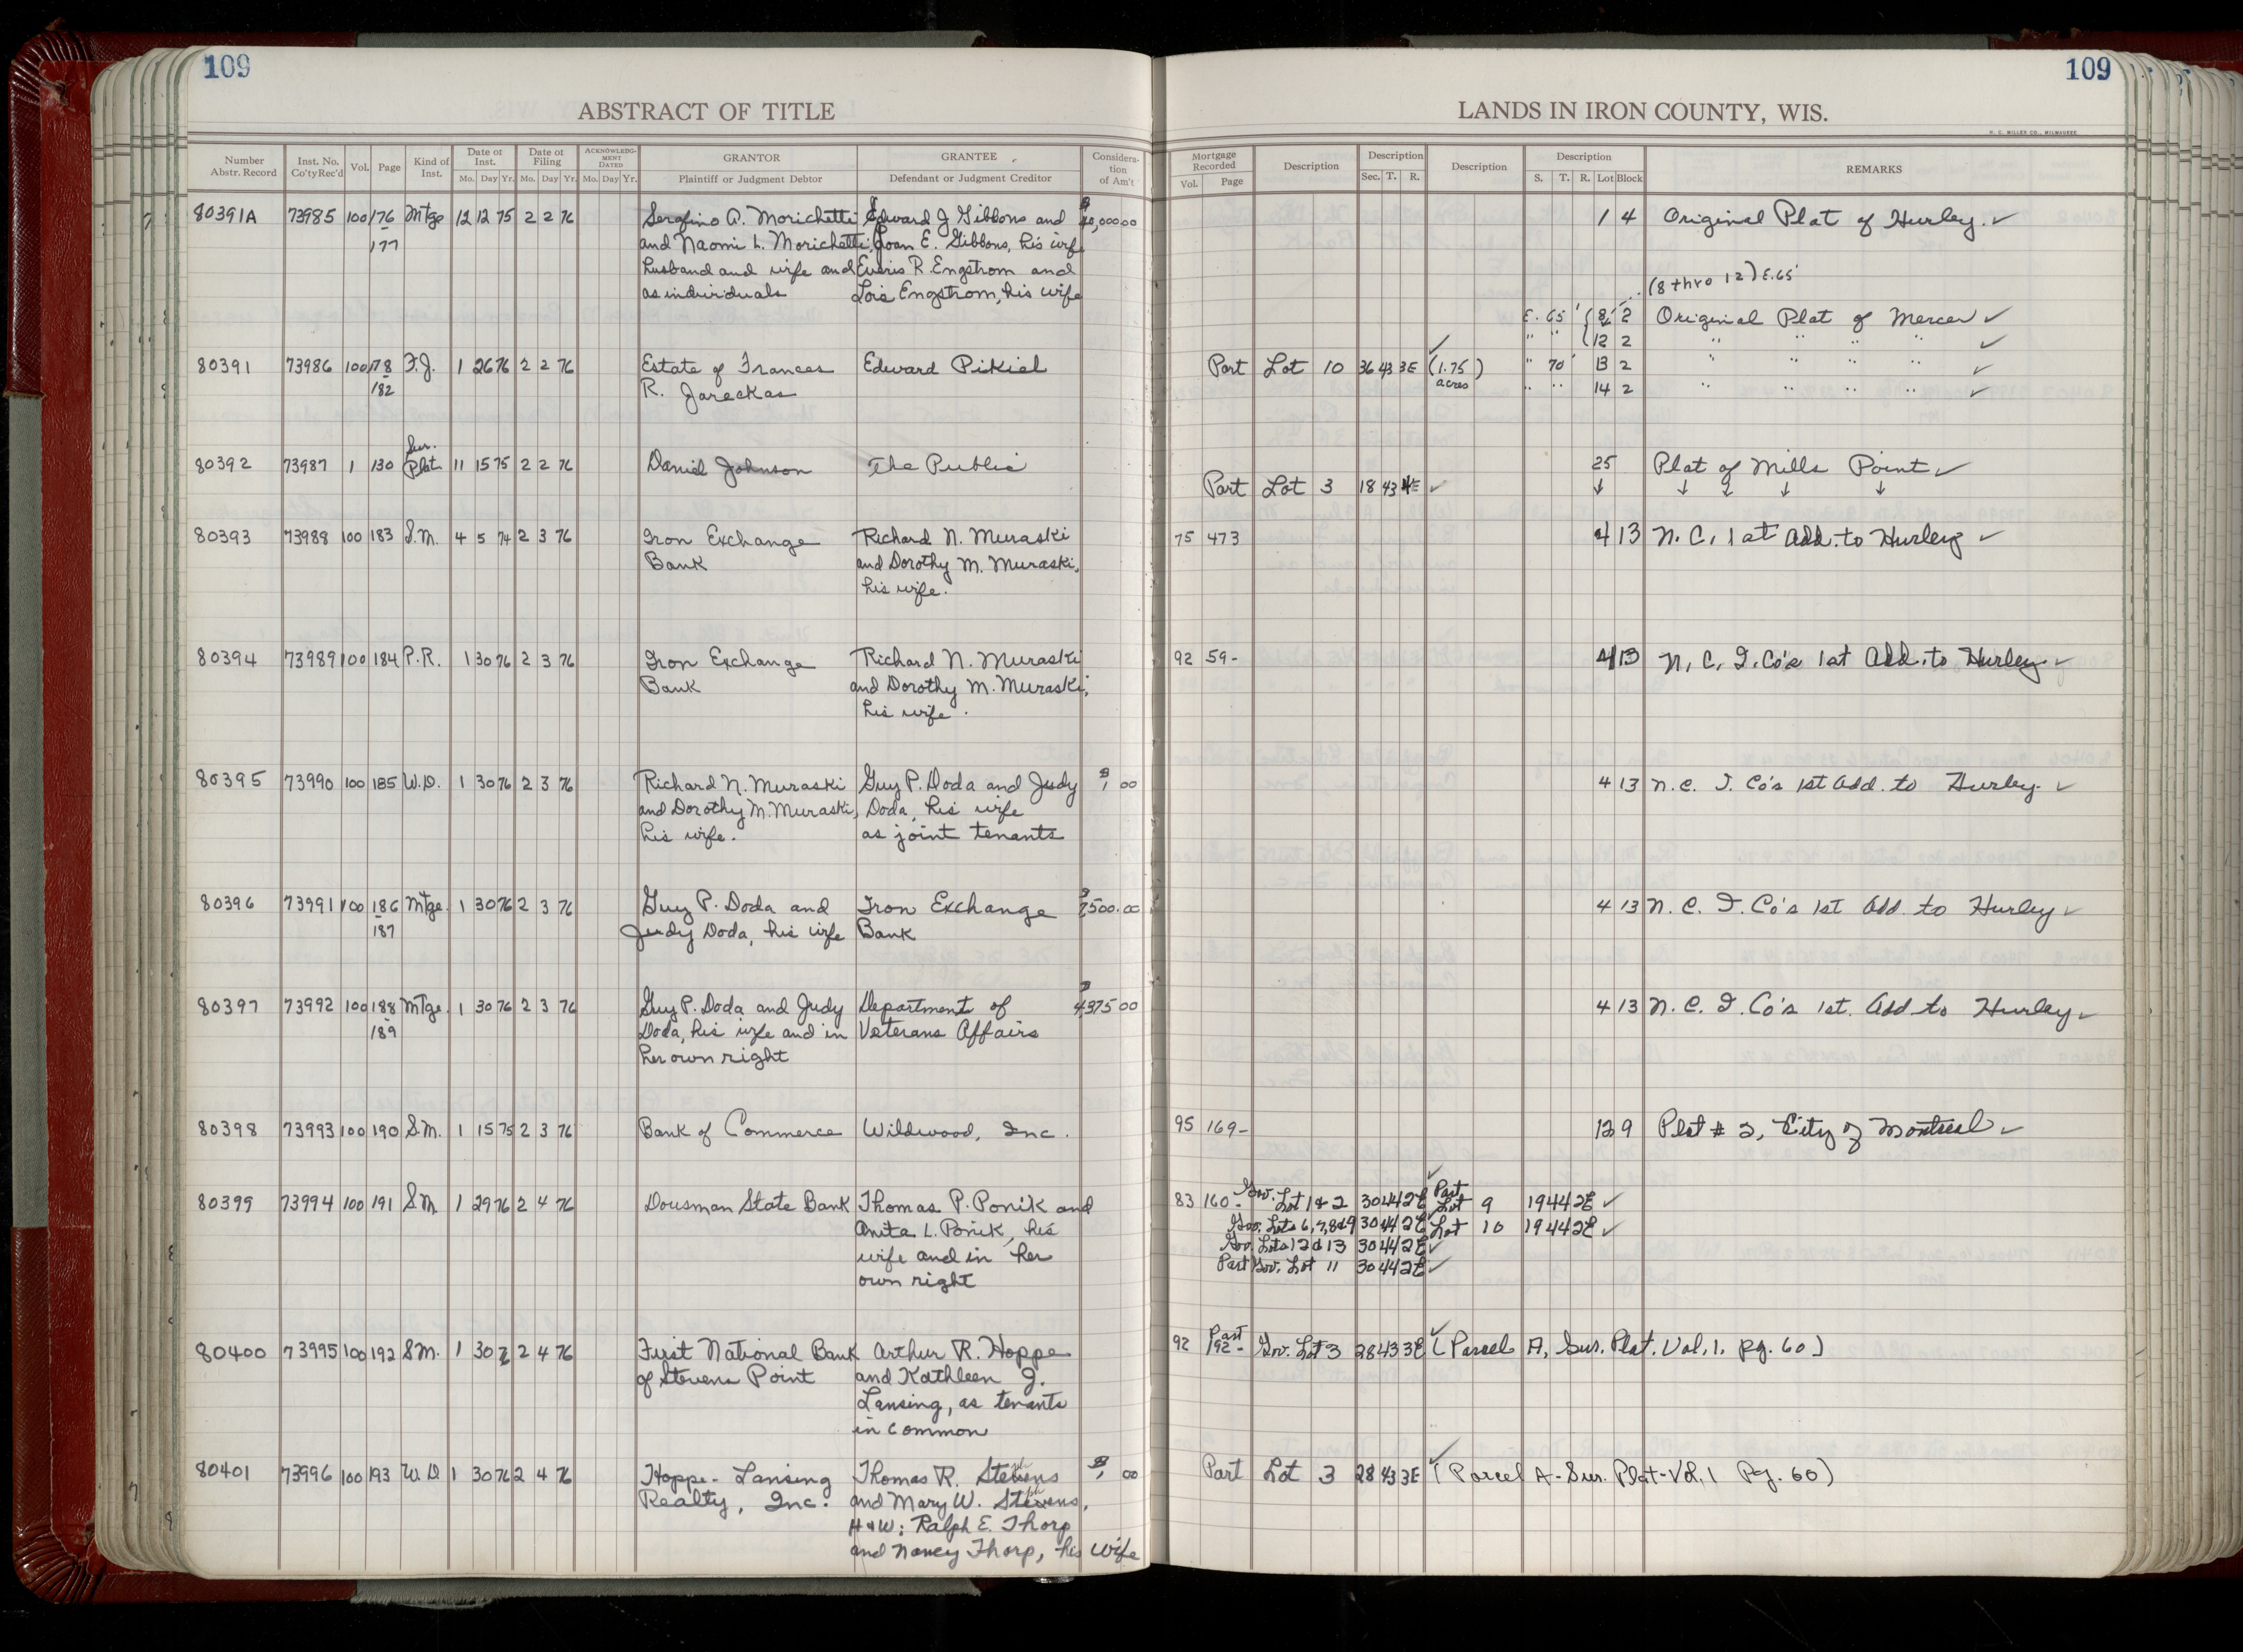 109
109
ABSTRACT OF TITLE
LANDS IN IRON COUNTY, WIS.
H. C. MILLER CO., MILWAUKEE
Number Abstr. Record | Inst. No. Co'ty Rec'd | Vol. | Page | Kind of Inst. | Date of Inst. Mo. Day Yr. | Date of Filing Mo. Day Yr. | ACKNOWLEDGMENT DATED Mo. Day Yr. | GRANTOR Plaintiff or Judgment Debtor | GRANTEE Defendant or Judgment Creditor | Consideration of Am't | Mortgage Recorded Vol. Page | Description | Description Sec. T. R. | Description | Description S. T. R. Lot Block | REMARKS
80391A 73985 100 176 Mtge 12 12 75 2 2 76 Serafino A. Morichetti Edward J Gibbons and $ 40,000 00 1 4 Original Plat of Hurley. ✓
177 and Naomi L. Morichetti, Joan E. Gibbons, his wife
husband and wife and Everis R. Engstrom and
as individuals Lois Engstrom, his wife
(8 thro 12) E. 65'
E. 65' 8 2 Original Plat of Mercer ✓
" " 12 2 " " " " ✓
80391 73986 100 178 F.J. 1 26 76 2 2 76 Estate of Frances Edward Pikiel Part Lot 10 36 43 3E (1.75) ✓ " 70' 13 2 " " " " ✓
182 R. Jareckas acres " " 14 2 " " " " ✓
Sur.
80392 73987 1 130 Plat 11 15 75 2 2 76 Daniel Johnson The Public 25 Plat of Mills Point ✓
Part Lot 3 18 43 4E ✓ ↓ ↓ ↓ ↓ ↓
80393 73988 100 183 S.M. 4 5 74 2 3 76 Iron Exchange Richard N. Muraski 75 473 4 13 N. C. 1st Add. to Hurley ✓
Bank and Dorothy M. Muraski,
his wife.
80394 73989 100 184 P.R. 1 30 76 2 3 76 Iron Exchange Richard N. Muraski 92 59- 4 13 N. C. I. Co's 1st Add. to Hurley ✓
Bank and Dorothy M. Muraski,
his wife.
80395 73990 100 185 W.D. 1 30 76 2 3 76 Richard N. Muraski Guy P. Doda and Judy $ 1 00 4 13 N. C. I. Co's 1st Add. to Hurley. ✓
and Dorothy M. Muraski, Doda, his wife
his wife. as joint tenants
80396 73991 100 186 Mtge. 1 30 76 2 3 76 Guy P. Doda and Iron Exchange $ 7,500.00 4 13 N. C. I. Co's 1st Add. to Hurley ✓
187 Judy Doda, his wife Bank
80397 73992 100 188 Mtge. 1 30 76 2 3 76 Guy P. Doda and Judy Department of $ 4,375 00 4 13 N. C. I. Co's 1st. Add to Hurley ✓
189 Doda, his wife and in Veterans Affairs
her own right
80398 73993 100 190 S.M. 1 15 75 2 3 76 Bank of Commerce Wildwood, Inc. 95 169- 12 9 Plat # 2, City of Montreal ✓
80399 73994 100 191 SM 1 29 76 2 4 76 Dousman State Bank Thomas P. Ponik and 83 160- Gov. Lot 1 & 2 30 44 2E ✓ Part Lot 9 19 44 2E ✓
Anita L. Ponik, his Gov. Lots 6,7,8&9 30 44 2E ✓ Lot 10 19 44 2E ✓
wife and in her Gov. Lots 12 & 13 30 44 2E ✓
own right Part Gov. Lot 11 30 44 2E ✓
80400 73995 100 192 SM. 1 30 2 4 76 First National Bank Arthur R. Hoppe 92 192- Part Gov. Lot 3 28 43 3E ✓ (Parcel A, Sur. Plat. Vol. 1. pg. 60)
of Stevens Point and Kathleen J.
Lansing, as tenants
in common
80401 73996 100 193 W.D 1 30 76 2 4 76 Hoppe-Lansing Thomas R. Stevens $ 1 00 Part Lot 3 28 43 3E ✓ (Parcel A-Sur. Plat-Vol. 1 Pg. 60)
Realty, Inc. and Mary W. Stevens,
H & W; Ralph E. Thorp
and Nancy Thorp, his wife